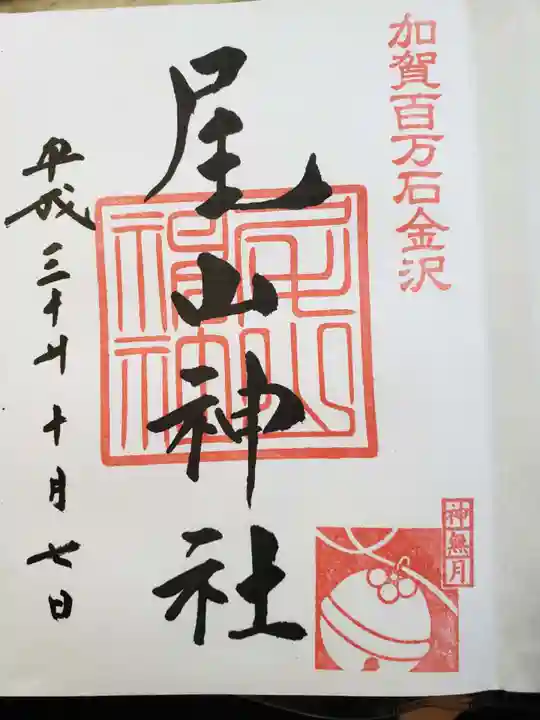 加賀百万石金沢
尾山神社
神無月
平成三十年十月七日